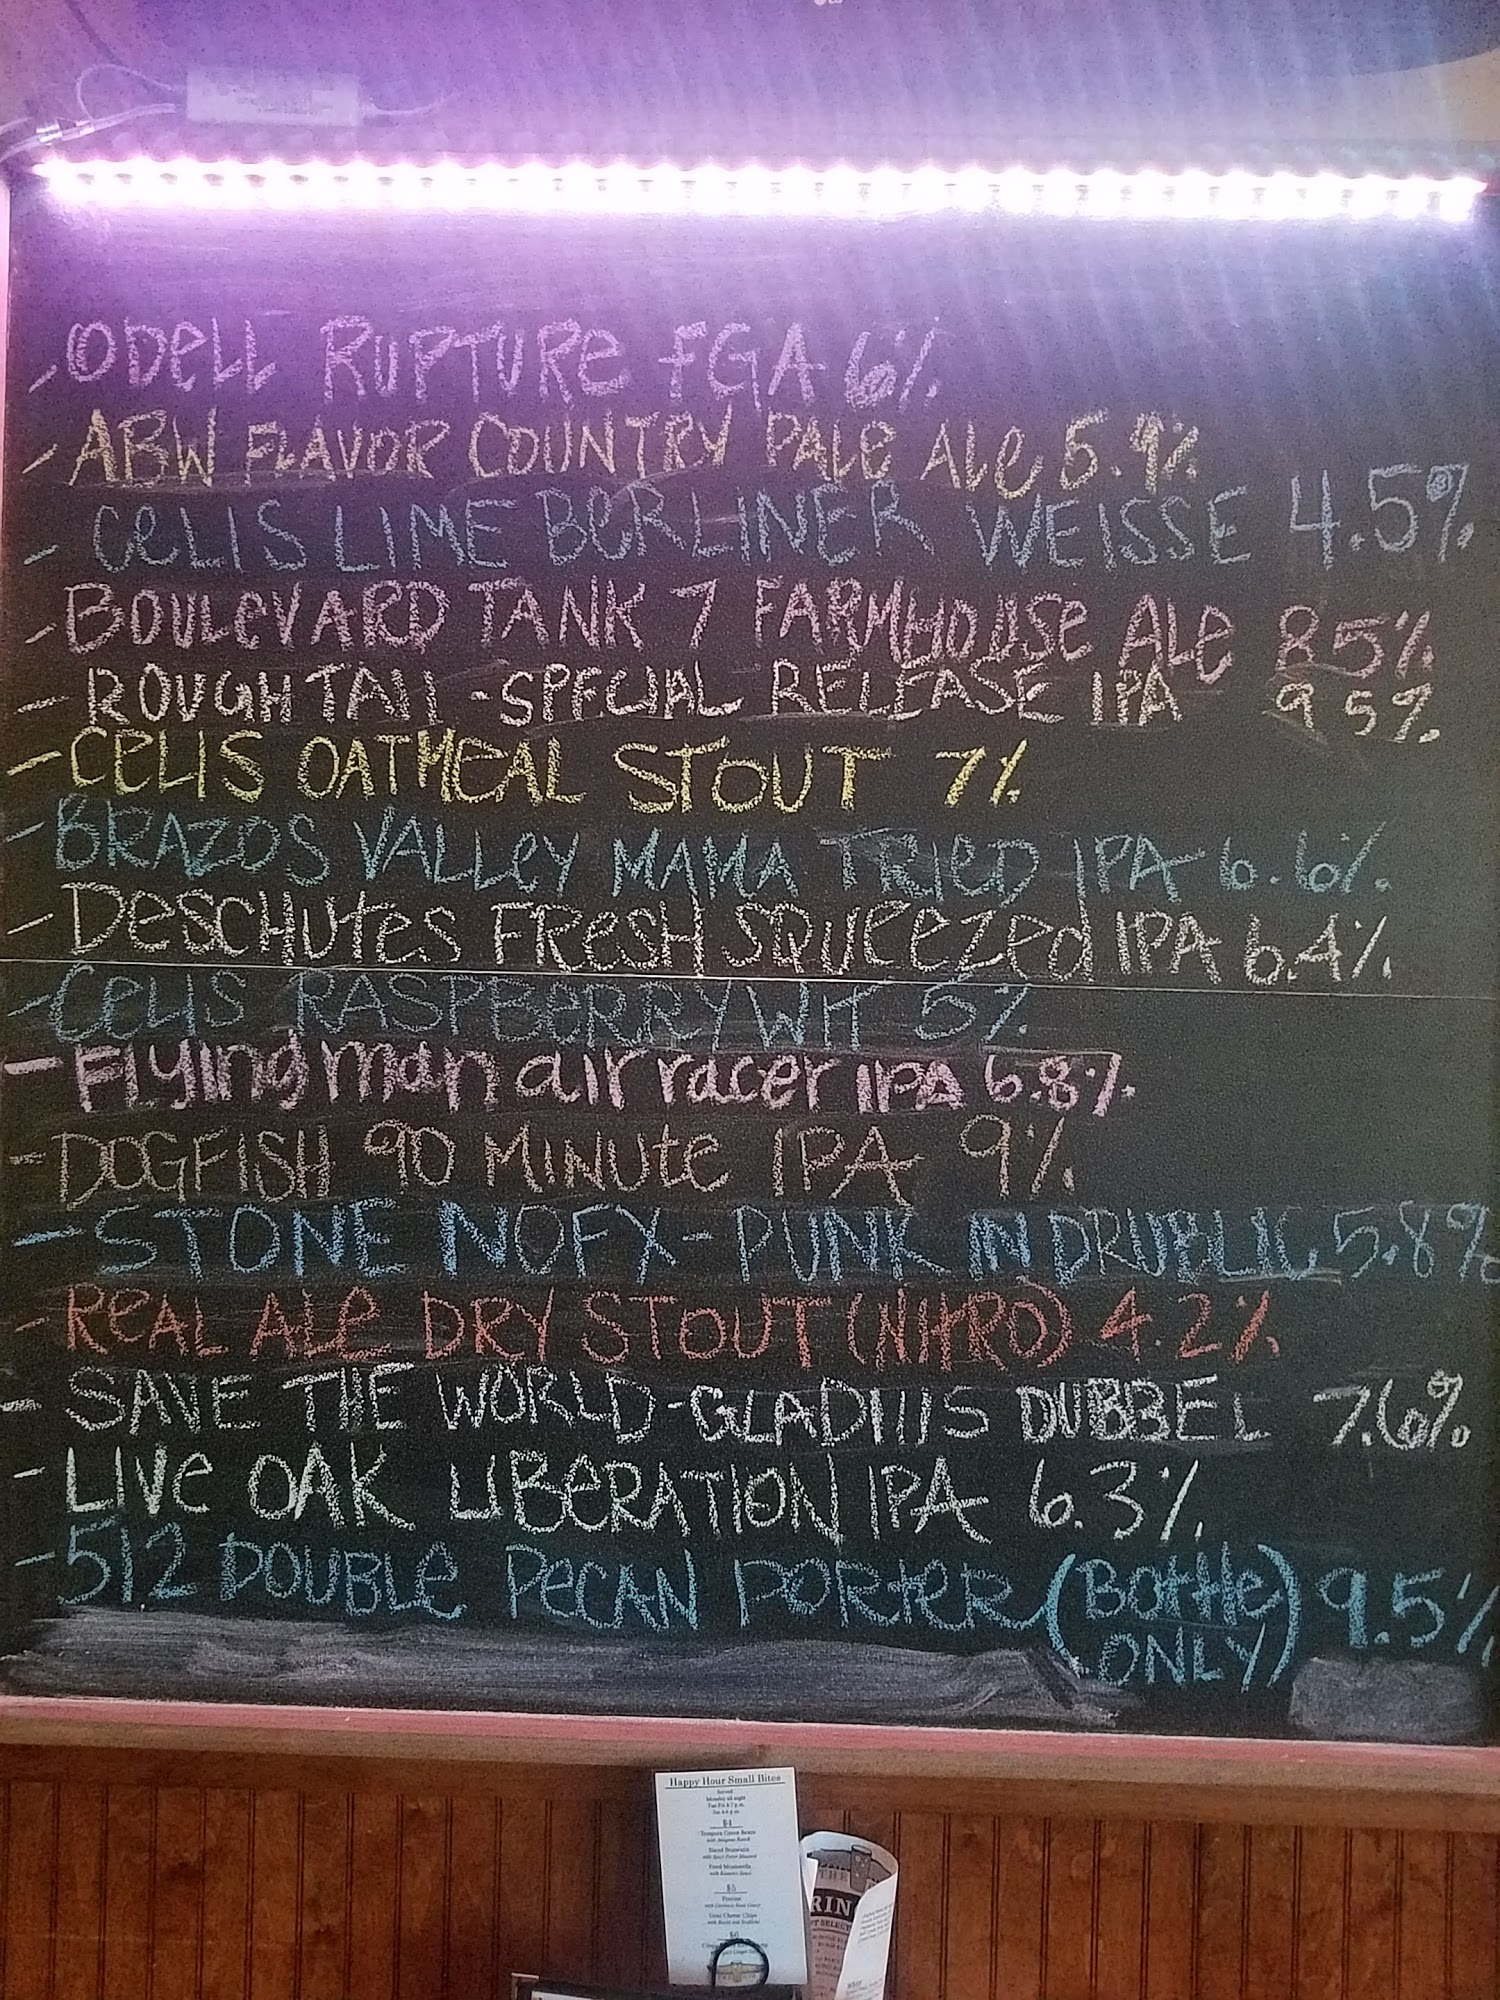 - ODELL RUPTURE FGA 6%
- ABW FLAVOR COUNTRY PALE ALE 5.9%
- CELIS LIME BERLINER WEISSE 4.5%
- BOULEVARD TANK 7 FARMHOUSE ALE 8.5%
- ROUGHTAIL - SPECIAL RELEASE IPA 9.5%
- CELIS OATMEAL STOUT 7%
- BRAZOS VALLEY MAMA TRIED IPA 6.6%
- DESCHUTES FRESH SQUEEZED IPA 6.4%
- CELIS RASPBERRY WIT 5%
- Flying man air racer IPA 6.8%
- DOGFISH 90 MINUTE IPA 9%
- STONE NOFX - PUNK IN DRUBLIC 5.8%
- REAL ALE DRY STOUT (NITRO) 4.2%
- SAVE THE WORLD - GLADIUS DUBBEL 7.6%
- LIVE OAK LIBERATION IPA 6.3%
- 512 DOUBLE PECAN PORTER (BOTTLE ONLY) 9.5%
Happy Hour Small Bites
Served
Monday all night
$4
Tempura Green Beans
Sliced Bratwurst
Fried Mozzarella
$5
Poutine
Goat Cheese Chips
$6
THE
RIN